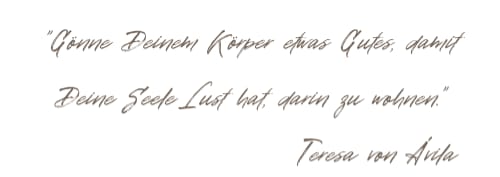 "Gönne Deinem Körper etwas Gutes, damit
Deine Seele Lust hat, darin zu wohnen."
Teresa von Ávila